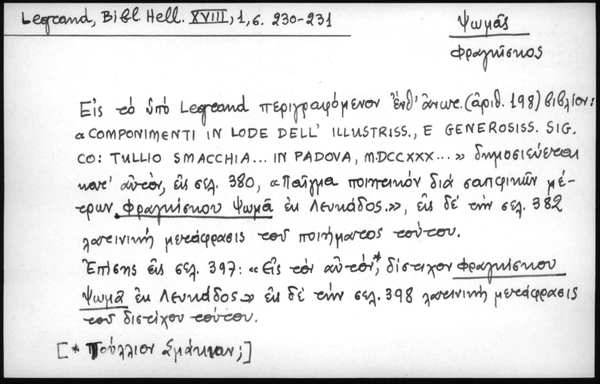 Legrand, Bibl. Hell. XVIII, 1, σ. 230-231
Ψωμᾶς
Φραγκῖσκος
Εἰς τὸ ὑπὸ Legrand περιγραφόμενον ἐνθ' ἄνωτ. (ἀριθ. 198) βιβλίον:
« COMPONIMENTI IN LODE DELL' ILLUSTRISS., E GENEROSISS. SIG.
CO: TULLIO SMACCHIA... IN PADOVA, MDCCXXX... » δημοσιεύεται
κατ' αὐτόν, εἰς σελ. 380, « Παῖγμα ποιητικόν διά σαπφικῶν μέ-
τρων Φραγκίσκου Ψωμᾶ ἐκ Λευκάδος. », εἰς δέ τὴν σελ. 382
λατινική μετάφρασις τοῦ ποιήματος τούτου.
Ἐπίσης εἰς σελ. 397: « Εἰς τὸν αὐτόν*, δίστιχον Φραγκίσκου
Ψωμᾶ ἐκ Λευκάδος. » εἰς δέ τὴν σελ. 398 λατινική μετάφρασις
τοῦ διστίχου τούτου.
[* Τούλλιον Σμάκιαν;]